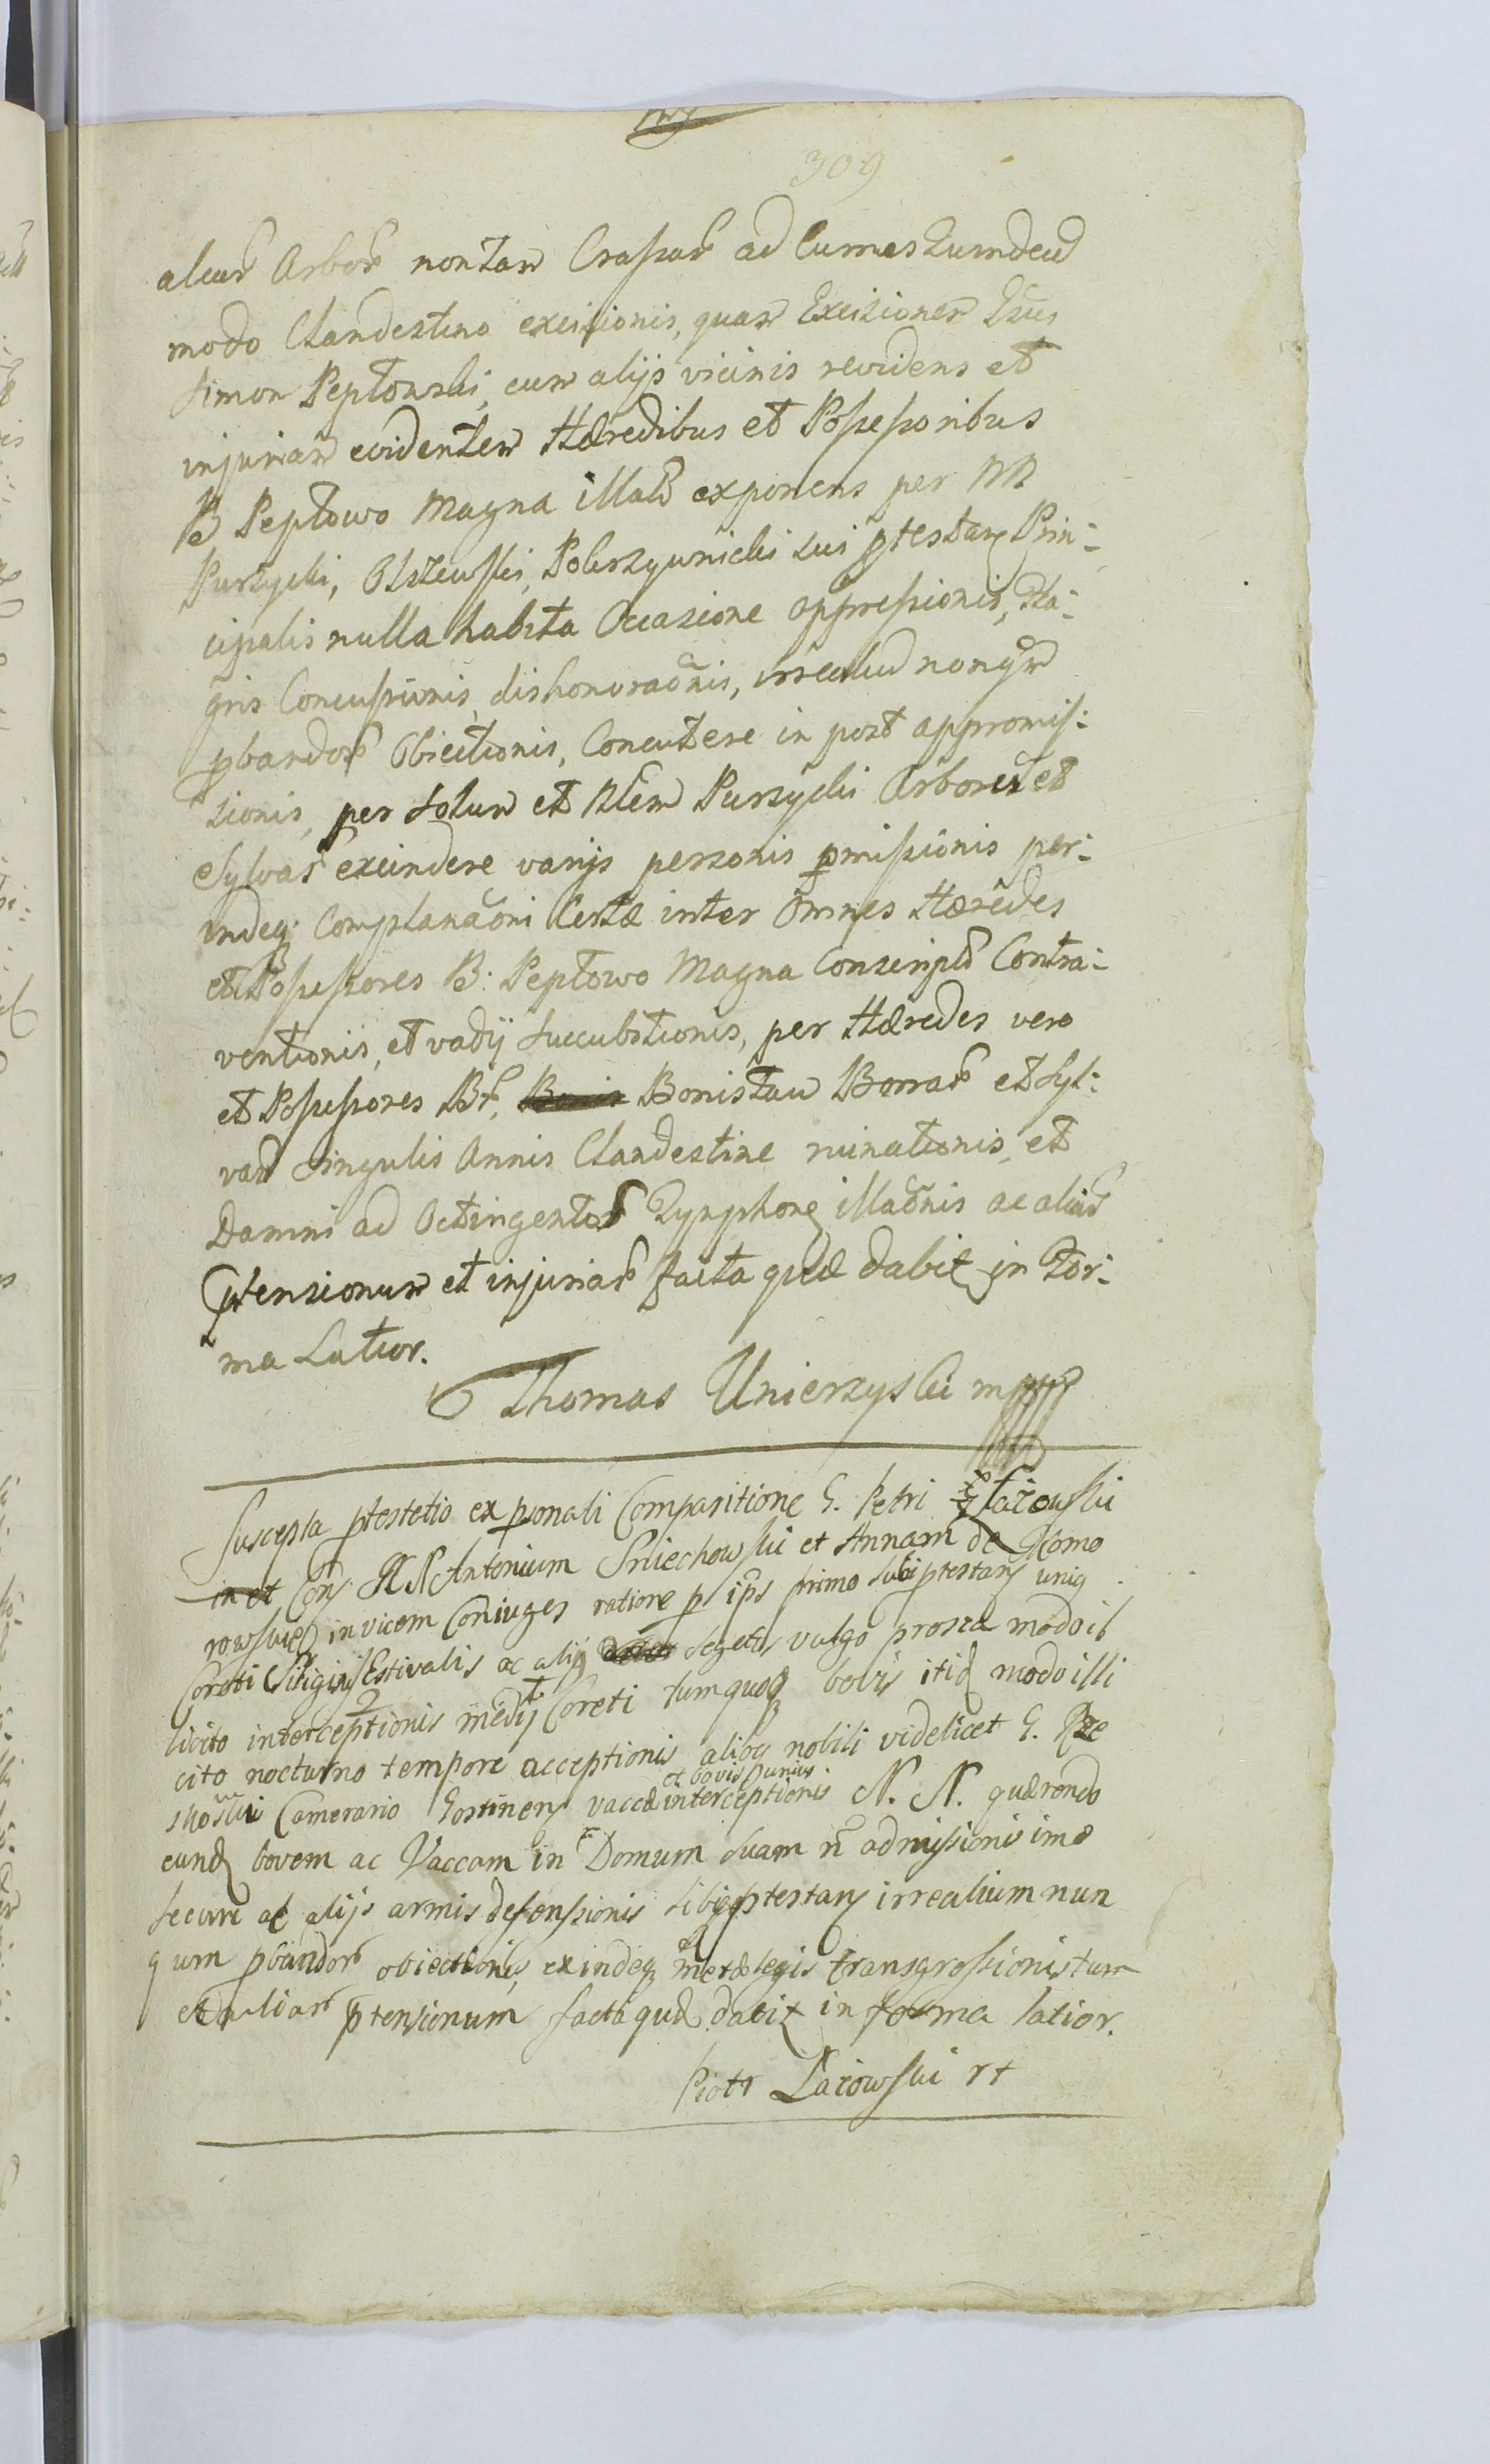 309
aliar Arbor non tam Crassar ad Cumeszumdeud
modo Clandestino excisionis, quam Excizionem Gsus
Simon Peptowski, cum alijs vicinis revidens et
injuriam evidentem Hæredibus et Possessoribus
B Peptowo Magna illatã exponens per NN
Purzycki, Olszewski, Pokrzywnicki sui ptestanẽ Prin-
cipalis nulla habita Occazione oppressionis,
Concussionis, dishonoraõnis, irrealiũ nonqm
pbandor Obiectionis, Concutere in post appromis-
sionis, per Solum et Nlem Purzycki Arbores et
Sylvas excindere varijs personis pmissionis per-
indeq; Complanaõni Certæ inter Omnes Hæredes
et Possessores B: Peptowo Magna Conscriptã Contra-
ventionis, et vadij Succubitionis, per Hæredes vero
et Possessores Bonistaw Borrar et Syl-
var Singulis Annis Clandestine ruinationis, et
Damni ad Octingentos Tynphonẽ illaõnis ac aliar
ptensionum et injuriar facta quæ dabit in For-
ma Latior.
Thomas Unierzyski mpp
Suscepta ptestatio ex psonali Comparitione G. Petri Łazowski
in et Con NN Antonium Sniechowski et Annam de Komo
rowskie invicem Coniuges ratione p ips primo sibi ptestanẽ uniq
Coreti Siliginis Estivalis ac alij segetis vulgo prosza modo il
licito interceptionis medij Coreti tum quoq bovis itid modo illi
cito nocturno tempore acceptionis alibq nobili videlicet G. Rze
szkowski Camerario Gostinenẽ vaccæ et bovis unius interceptionis N. N. quærendo
eund bovem ac Vaccam in Domum Suam ñ admissionis imo
securi ac alijs armis defensionis sibi ptestanẽ irrealium nun
qum pbandor obiectionis, exindeq metæ legis transgressionis tum
et aliar ptensionum facta quæ dabit in forma latior.
Piotr Łazowski rt